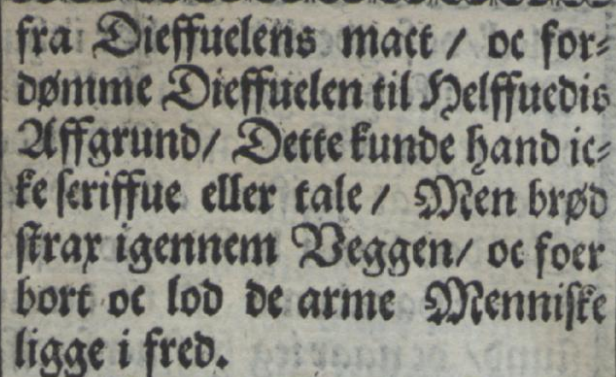 fra Dieffuelens mact / oc for-
dømme Dieffuelen til Helffuedis
Affgrund/ Dette kunde hand ic-
ke scriffue eller tale / Men brød
strax igennem Veggen/ oc foer
bort oc lod de arme Menniske
ligge i fred.